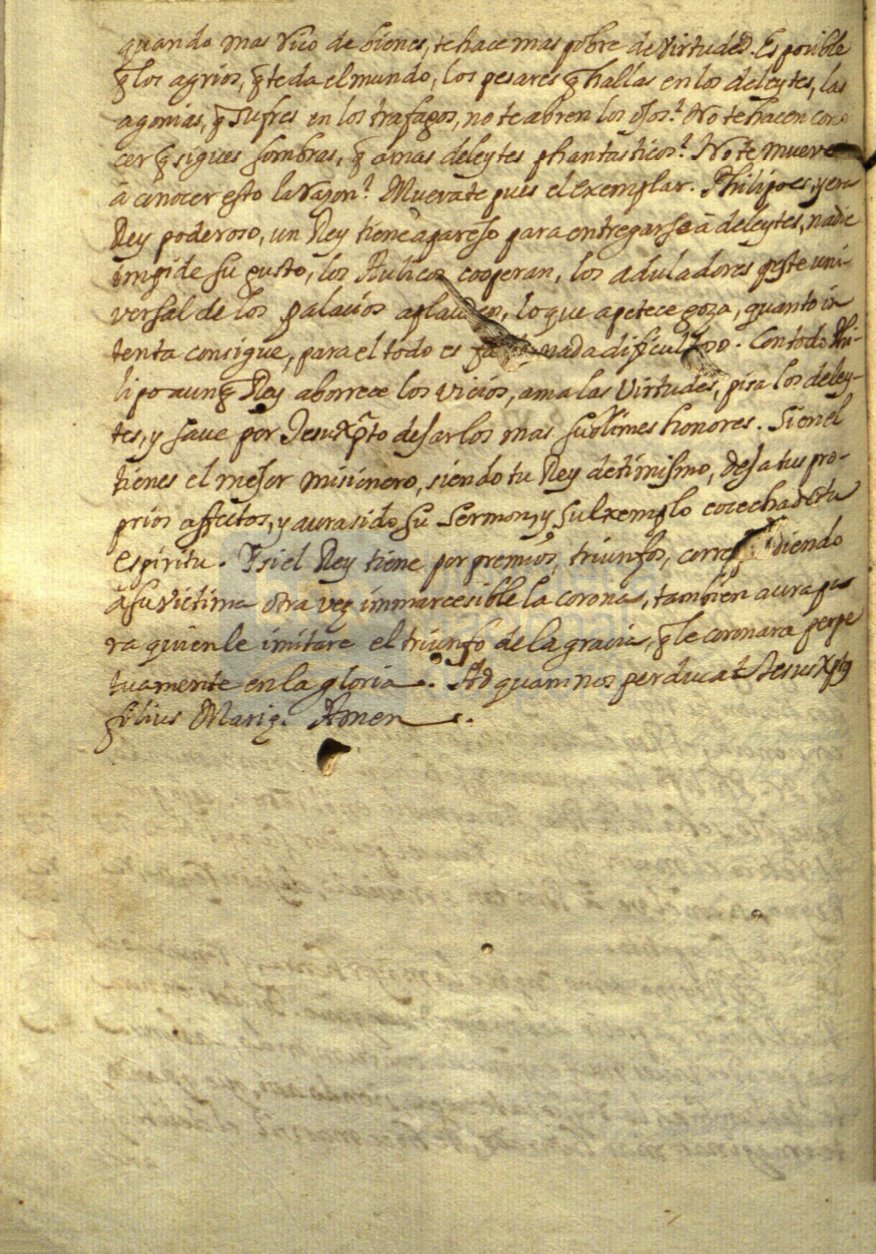 quando mas rico de bienes, te hace mas pobre de virtudes. Es posible
q̃ los agrios, q̃ te da el mundo, los pesares q̃ hallas en los deleytes, las
agonias, q̃ sufres en los trafagos, no te abren los ojos? No te hacen cono
cer q̃ sigues sombras, q̃ amas deleytes phantasticos? No te mueve
â conocer esto la razon? Muevate pues el exemplar. Philipo es, y era
Rey poderoso, un Rey tiene aparejo para entregarse â deleytes, nadie
impide su gusto, los Aulicos cooperan, los aduladores peste uni-
versal de los palacios aplauden, lo que apetece goza, quanto in
tenta consigue, para el todo es nada dificultoso. Con todo Phi-
lipo aunq̃ Rey aborrece los vicios, ama las virtudes, pisa los deley-
tes, y save por Jesuxp̃to dejar los mas sublimes honores. Si en el
tienes el mejor misionero, siendo tu Rey de ti mismo, deja tus pro-
prios affectos, y aura sido su Sermon, y su exemplo cocecha de tu
espiritu. Y si el Rey tiene por premios, triunfos, diendo
â su victima otra vez immarcesible la corona, tambien aura pa
ra quien le imitare el triunfo de la gracia, q̃ le coronara perpe
tuamente en la gloria. Ad quam nos perducat Jesus Xptq
filius Marię. Amen.